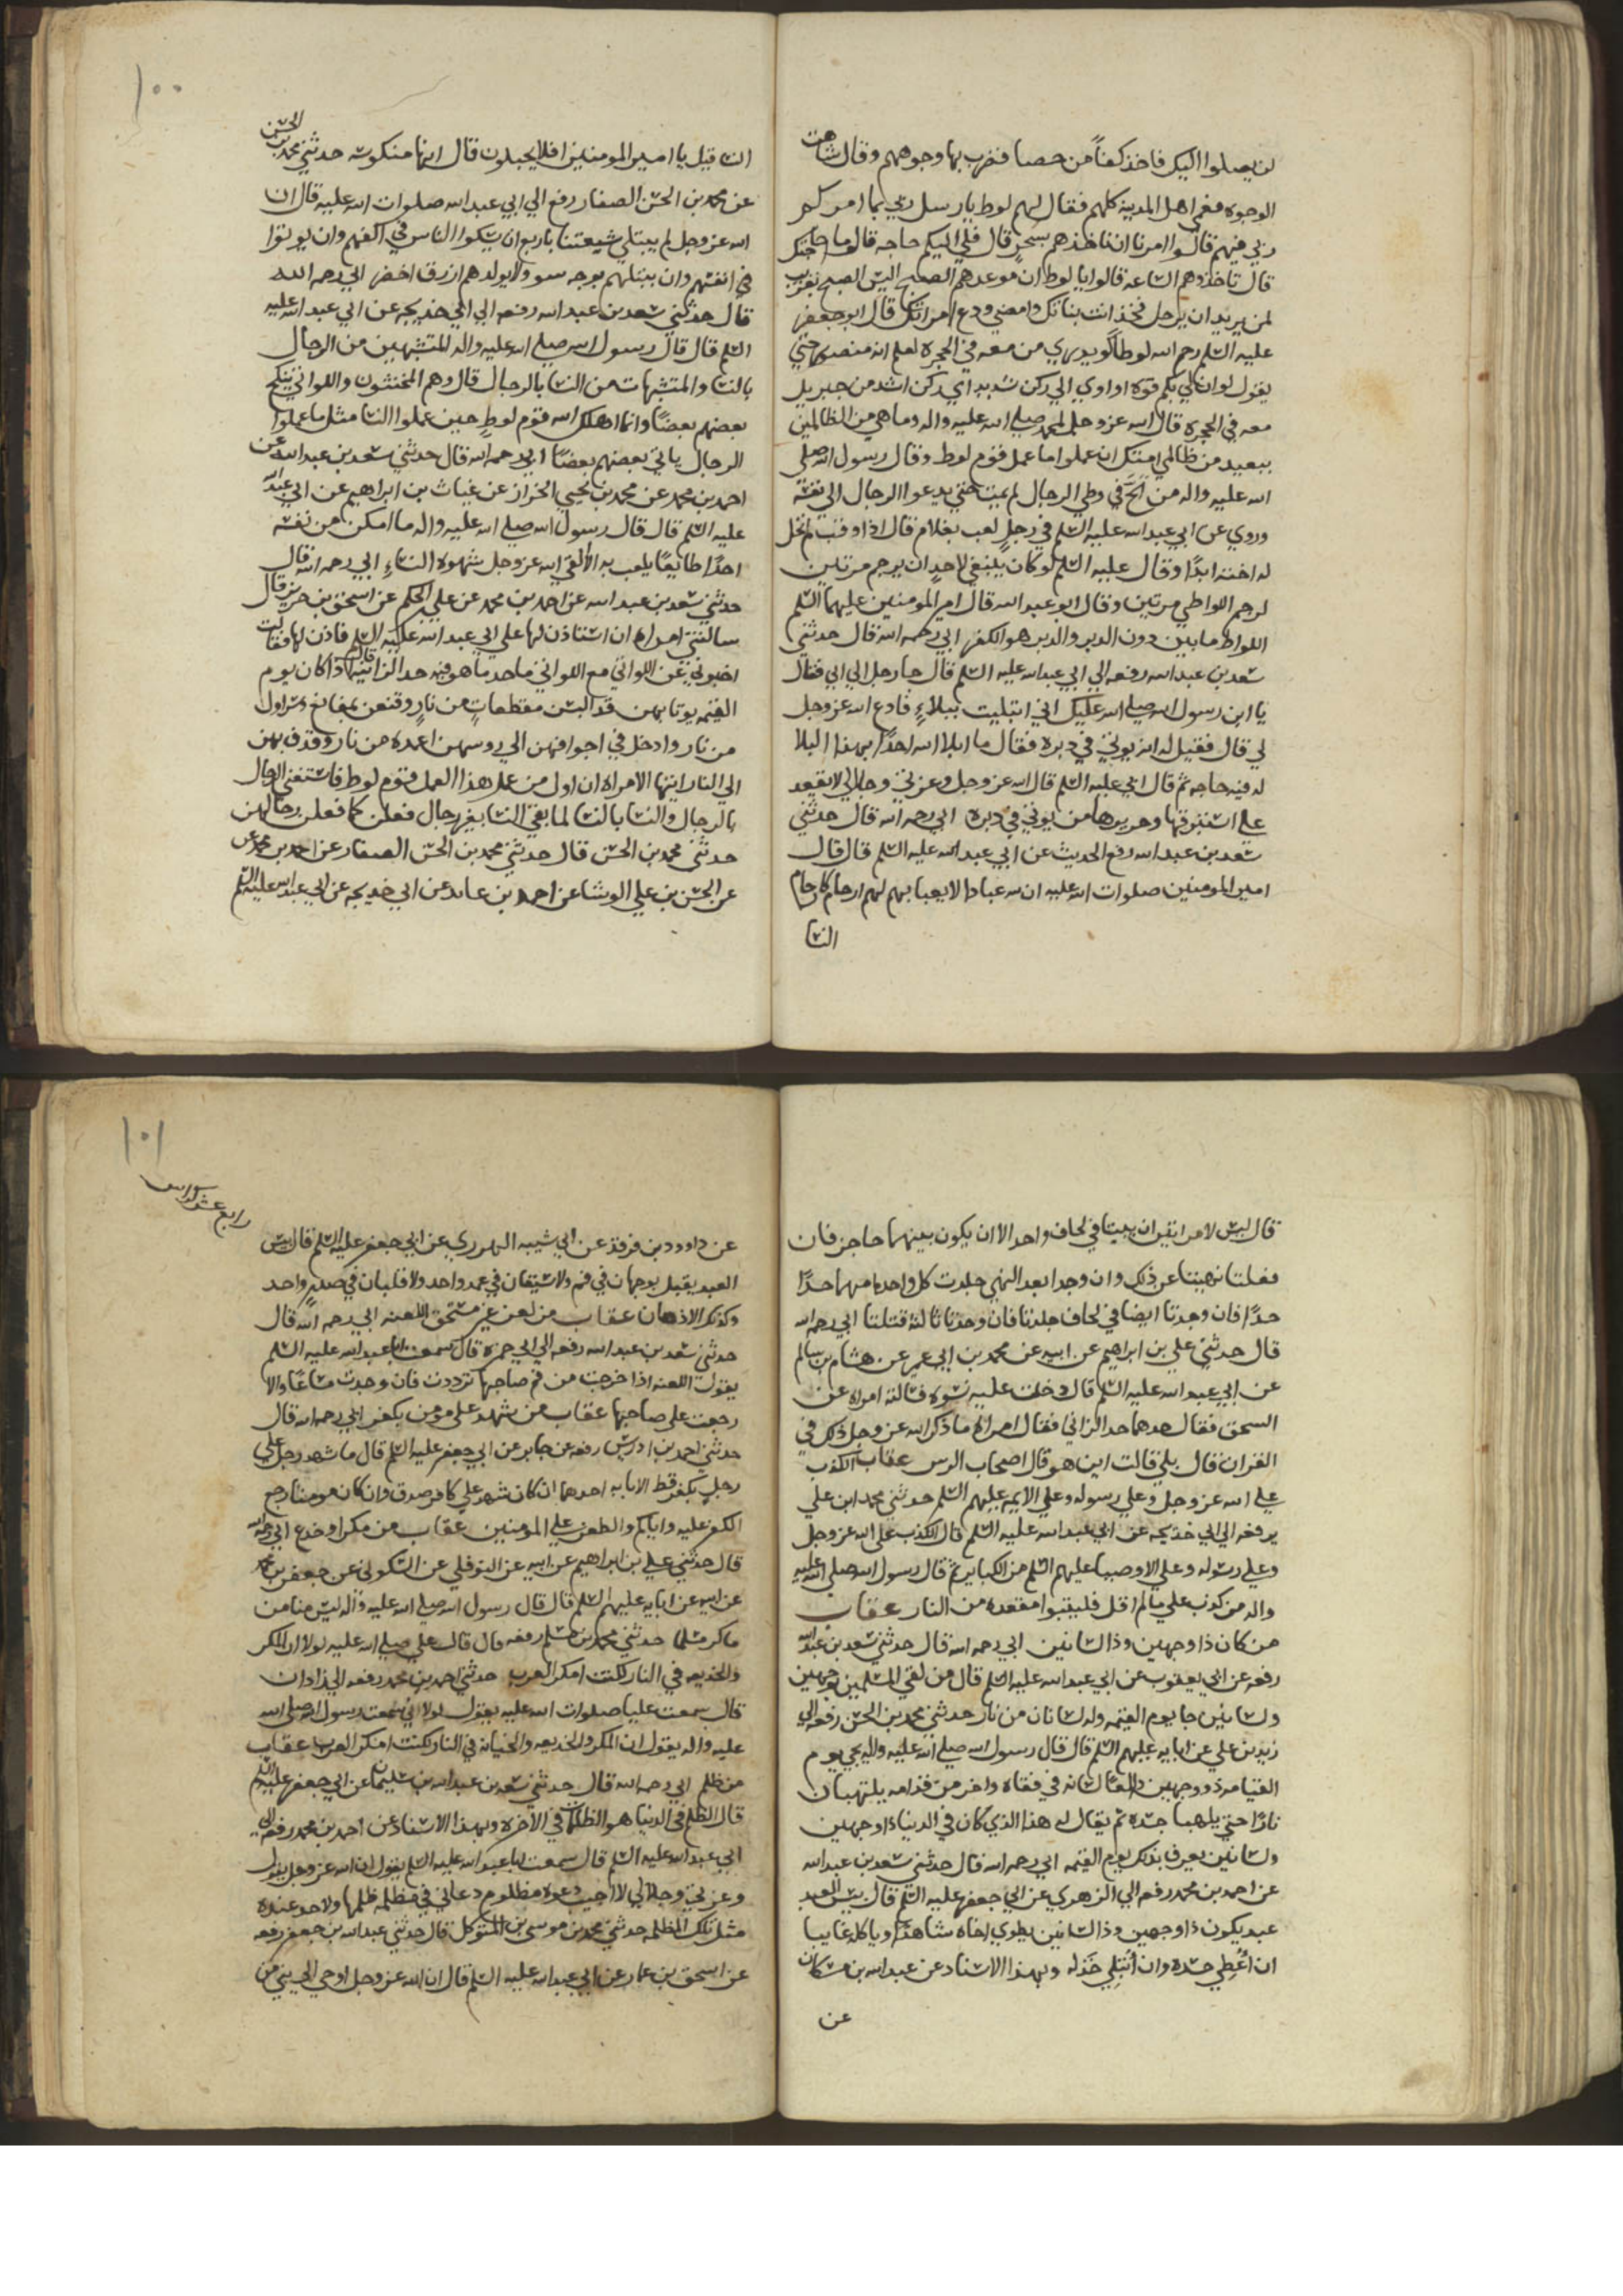 لن يصلوا اليك فاخذ كفاً من حصا فضرب بها وجوههم وقال شاهت
الوجوه فعمي اهل المدينه كلهم فقال لهم لوط يا رسل ربي بما امركم
ربي فيهم قالوا امرنا ان ناخذهم بسحر قال فلي اليكم حاجه قالوا ما حاجتك
قال تاخذوهم الساعه قالوا يا لوط ان موعدهم الصبح اليس الصبح بقريب
لمن يريد ان يرحل فخذ انت بناتك وامضي ودع امراتك قال ابو جعفر
عليه السلم رحم الله لوطاً لو يدري من معه في الحجرة لعلم انه منصور حتي
يقول لو ان لي بكم قوه او اوي الي ركن شديد اي ركن اشد من جبريل
معه في الحجرة قال الله عز وجل لمحمد صلي الله عليه واله وما هي من الظالمين
ببعيد من ظالمي امتك ان عملوا ما عمل قوم لوط وقال رسول الله صلي
الله عليه واله من الحَّ في وطي الرجال لم يمت حتي يدعوا الرجال الي نفسه
وروي عن ابي عبد الله عليه السلم في رجلٍ لعب بغلام قال اذا وقب لم تحل
له اخته ابدًا وقال عليه السلم لو كان ينبغي لاحدٍ ان يرجم مرتين
لرجم اللواطي مرتين وقال ابو عبد الله قال امير المومنين عليهما السلم
اللواط ما بين دون الدبر والدبر هو الكفر ابي رحمه الله قال حدثني
سعد بن عبد الله رفعه الي ابي عبد الله عليه السلم قال جا رجل الي ابي فقال
يا ابن رسول الله صلي الله عليك اني ابتليت ببلاءٍ فادع الله عز وجل
لي قال فقيل له انه يوتي في دبره فقال ما ابلا الله احداً بهذا البلا
له فيه حاجه ثم قال ابي عليه السلم قال الله عز وجل وعزتي وجلالي لا يقعد
علي استبرقها وحريرها من يوتي في دبره ابي رحمه الله قال حدثني
سعد بن عبد الله رفع الحديث عن ابي عبد الله عليه السلم قال قال
امير المومنين صلوات الله عليه ان لله عبادا لا يعبا بهم لهم ارحام كارحام
النسا
١٠٠
النسا قيل يا امير المومنين افلا يحبلون قال انها منكوسه حدثني محمد بن الحسن
عن محمد بن الحسن الصفار رفع الي ابي عبد الله صلوات الله عليه قال ان
الله عز وجل لم يبتلي شيعتنا باربع ان يسالوا الناس في اكفهم وان يوتوا
في انفسهم وان يبتليهم بوجه سو ولا يولد لهم ازرق اخضر ابي رحمه الله
قال حدثني سعد بن عبد الله رفعه الي ابي خديجه عن ابي عبد الله عليه
السلم قال قال رسول الله صلي الله عليه واله المتشبهين من الرجال
بالنسا والمتشبهات من النسا بالرجال قال وهم المخنثون واللواتي ينكح
بعضهم بعضًا وانما اهلك الله قوم لوطٍ حين عملوا النسا مثل ما عملوا
الرجال ياتي بعضهم بعضاً ابي رحمه الله قال حدثني سعد بن عبد الله عن
احمد بن محمد عن محمد بن يحيي الخزاز عن غياث بن ابراهيم عن ابي عبد الله
عليه السلم قال قال رسول الله صلي الله عليه واله ما امكن من نفسه
احدًا طايعًا يلعب به الا القي الله عز وجل شهوة النساءِ ابي رحمه الله قال
حدثني سعد بن عبد الله عن احمد بن محمد عن علي الحكم عن اسحق بن حريز قال
سالتني امراه ان استاذن لها علي ابي عبد الله عليه السلم فاذن لها فقالت
اخبرني عن اللواتي مع اللواتي ما حد ما هو فيه حد الزانيه قال اذا كان يوم
القيمه يوتا بهن قد البسن مقطعاتٍ من نارٍ وقنعن بمقانع وسراول
من نار وادخل في اجوافهن الي روسهن اعمدة من نار وقذف بهن
الي النار ايتها الامراه ان اول من عمل هذا العمل قوم لوط فاستغني الرجال
بالرجال والنسا بالنسا لما بقي النسا بغير رجال فعلن كما فعلن رجالهن
حدثني محمد بن الحسن قال حدثني محمد بن الحسن الصفار عن احمد بن محمد عن
عن الحسن بن علي الوشا عن احمد بن عايد عن ابي خديجه عن ابي عبد الله عليه السلم
قال ليس لامراتين ان يبيتا في لحاف واحد الا ان يكون بينهما حاجز فان
فعلتا نهيتا عن ذلك وان وجدا بعد النهي جلدت كل واحده منهما حدًا
حدًا فان وجدتا ايضا في لحاف جلدتا فان وجدتا ثالثة قتلتا ابي رحمه الله
قال حدثني علي بن ابراهيم عن ابيه عن محمد بن ابي عمير عن هشام بن سالم
عن ابي عبد الله عليه السلم قال دخلت عليه نسوه فسالته امراه عن
السحق فقال حدهما حد الزاني فقال امراة ما ذكر الله عز وجل ذلك في
القران قال بلي قالت اين هو قال اصحاب الرس عقاب الكذب
علي الله عز وجل وعلي رسوله وعلي الايمه عليهم السلم حدثني محمد ابن علي
يرفعه الي ابي خديجه عن ابي عبد الله عليه السلم قال الكذب علي الله عز وجل
وعلي رسوله وعلي الاوصيا عليهم السلم من الكباير ثم قال رسول الله صلي الله عليه
واله من كذب علي ما لم اقل فليتبوا مقعده من النار عقاب
من كان ذا وجهين وذا لسانين ابي رحمه الله قال حدثني سعد بن عبد الله
رفعه عن ابي يعقوب عن ابي عبد الله عليه السلم قال من لقي المسلمين بوجهين
ولسانين جا يوم القيمه وله لسانان من نار حدثني محمد بن الحسن رفعه الي
زيد بن علي عن ابايه عليهم السلم قال قال رسول الله صلي الله عليه واله يجي يوم
القيامه ذو وجهين دالعًا لسانه في قفاه واخر من قدامه يلتهبان
نارًا حتي يلهبا جسده ثم يقال له هذا الذي كان في الدنيا ذا وجهين
ولسانين يعرف بذلك يوم القيمه ابي رحمه الله قال حدثني سعد بن عبد الله
عن احمد بن محمد رفعه الي الزهري عن ابي جعفر عليه السلم قال بيس العبد
عبد يكون ذا وجهين وذا لسانين يطوي اخاه شاهدًا وياكله غايبا
ان اُعطِي حسده وان اُبتلي خذله وبهذا الاسناد عن عبد الله بن مسكان
عن
١٠١
رابع عشر كراس
عن داوود بن فرقد عن ابي شيبه الهروي عن ابي جعفر عليه السلم قال بيس
العبد يقبل بوجهان في فم ولا سيفان في غمد واحد ولا قلبان في صدرٍ واحد
وكذلك الاذهان عقاب من لعن غير مستحق اللعنه ابي رحمه الله قال
حدثني سعد بن عبد الله رفعه الي ابي حمزه قال سمعت ابا عبد الله عليه السلم
يقول اللعنه اذا خرجت من فم صاحبها ترددت فان وجدت مساغًا والا
رجعت علي صاحبها عقاب من شهد علي مومن بكفر ابي رحمه الله قال
حدثني احمد بن ادريس رفعه عن جابر عن ابي جعفر عليه السلم قال ما شهد رجل علي
رجلٍ بكفر قط الا با به احدهما ان كان شهد علي كافر صدق وان كان مومنا رجع
الكفر عليه واياكم والطعن علي المومنين عقاب من مكر او خدع ابي رحمه الله
قال حدثني علي بن ابراهيم عن ابيه عن النوفلي عن السكوني عن جعفر بن محمد
عن ابيه عن ابايه عليهم السلم قال قال رسول الله صلي الله عليه واله ليس منا من
ماكر مسلما حدثني محمد بن مسلم رفعه قال قال علي صلي الله عليه لولا ان المكر
والخديعه في النار لكنت امكر العرب حدثني احمد بن محمد رفعه الي زاذان
قال سمعت عليا صلوات الله عليه يقول لولا اني سمعت رسول الله صلي الله
عليه واله يقول ان المكر والخديعه والخيانه في النار لكنت امكر العرب عقاب
من ظلم ابي رحمه الله قال حدثني سعد بن عبد الله بن سليمان عن ابي جعفر عليه السلم
قال الظلم في الدنيا هو الظلمات في الاخره وبهذا الاسناد عن احمد بن محمد رفعه الي
ابي عبد الله عليه السلم قال سمعت ابا عبد الله عليه السلم يقول ان الله عز وجل يقول
وعزتي وجلالي لا اجيب دعوه مظلوم دعاني في مظلمه ظلمها ولاحد عنده
مثل تلك المظلمه حدثني محمد بن موسى بن المتوكل قال حدثني عبد الله بن جعفر رفعه
عن اسحق بن عمار عن ابي عبد الله عليه السلم قال ان الله عز وجل اوحي الي نبي من